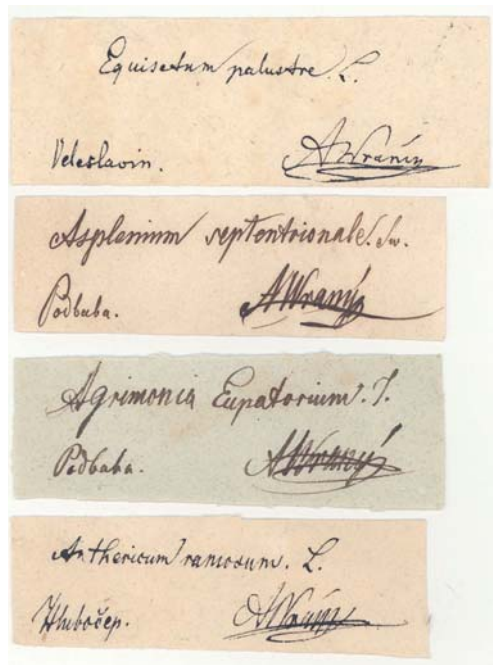 Equisetum palustre. L.
Veleslavin. AWraný
Asplenium septentrionale. Sw.
Podbaba. AWraný
Agrimonia Eupatorium. L.
Podbaba. AWraný
Anthericum ramosum. L.
Hlubočep. AWraný